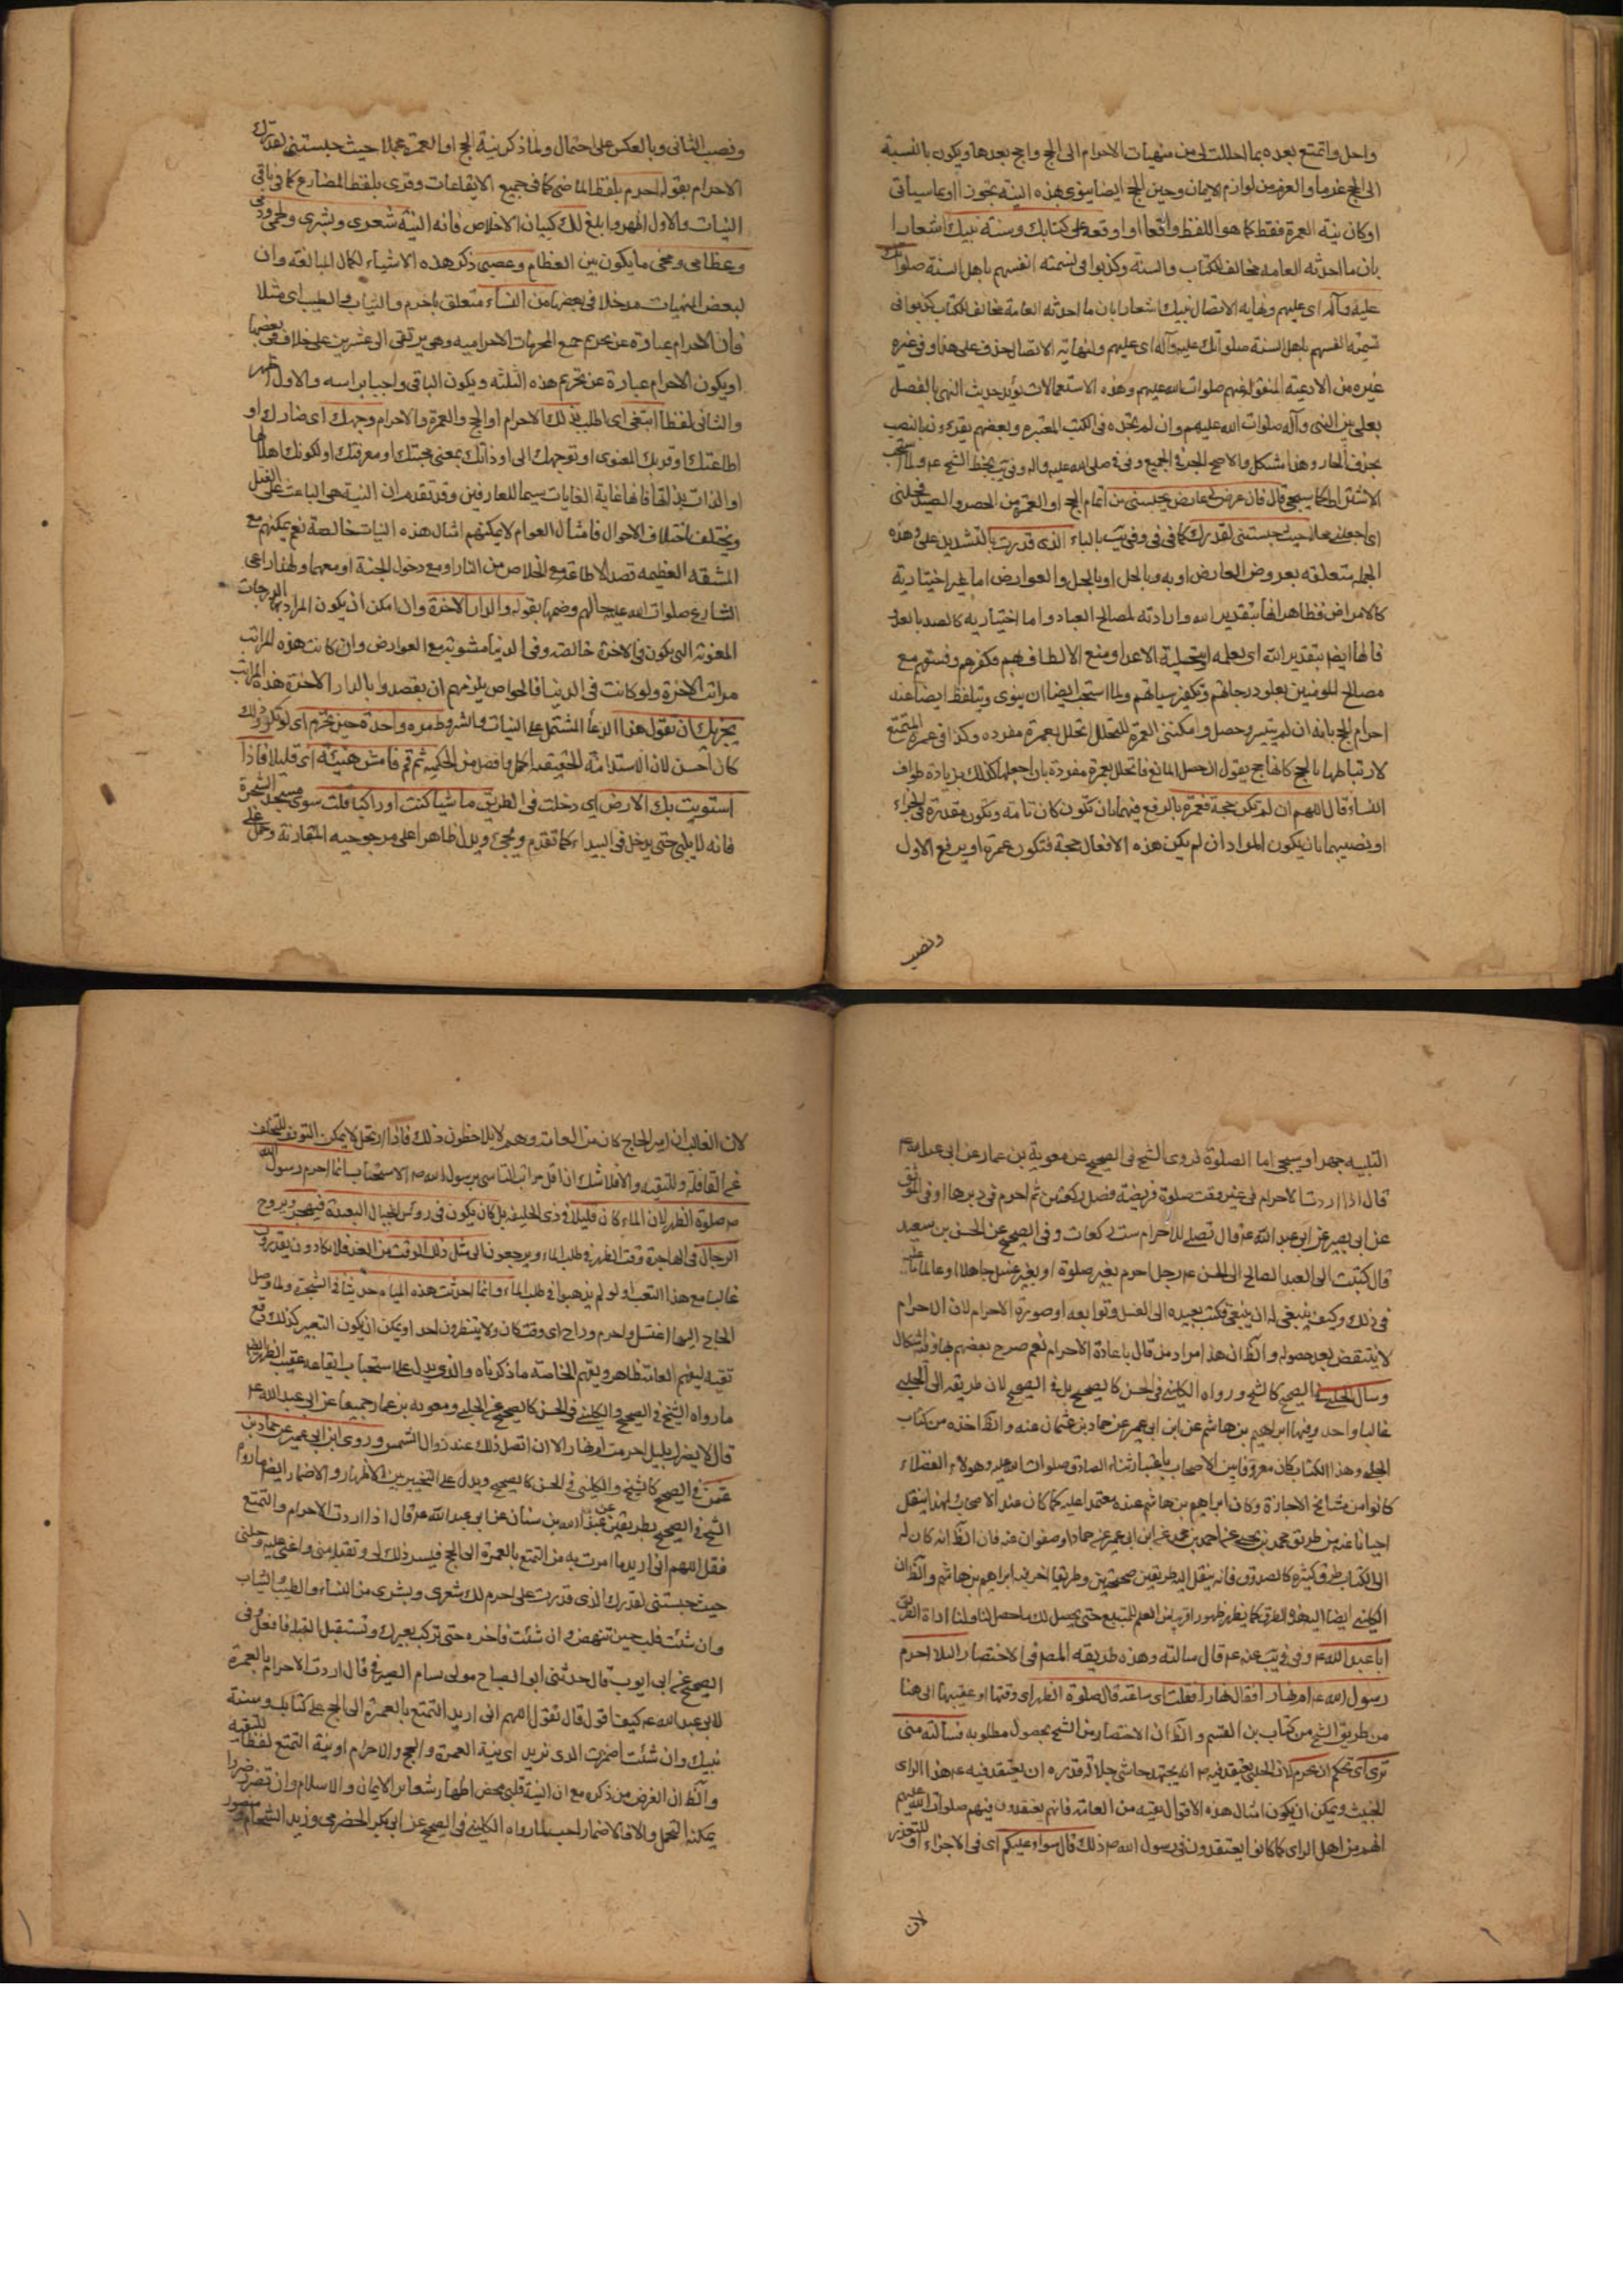 واحل واتمتع بعده بما احللت لی من منهیات الاحرام الی الحج واحج بعدها ویکون بالنسبة
الی الحج غدما والعزم من لوازم الایمان وحین الحج ایضا ینوی بهذه النیة تجوزا او عما سیأتی
او کان نیة العمرة فقط کما هو اللفظ واقعا او اوقعه علی کتابک وسنة نبیک اشعارا
بان ما احدثه العامه مخالف للکتاب والسنة وکذبوا فی تسمیته انفسهم باهل السنة صلواتک
علیه وآله ای علیهم ونهایه الاتصال نبیک اشعارا بان ما احدثه العامة مخالف للکتاب کذبوا فی
تسمیة انفسهم باهل السنة صلواتک علیه وآله ای علیهم ولنهایة الاتصال حذف علی هنا وفی غیره
غیره من الادعیة المنقولة عنهم صلوات الله علیهم وهذه الاستعمالات یؤید حدیث النهی بالفصل
بعلی بین النبی وآله صلوات الله علیهم وان لم نجده فی الکتب المعتبره وبعضهم یقرءونه بالنصب
بحذف الجار وهذا مشکل والاصح الجر فی الجمیع وفی فی صلی الله علیه وآله وفی یب بخط الشیخ ولما استحب
الاشتراط کما سیجی قال فان عرض لی عارض یحبسنی من اتمام الحج او العمرة من الحصر والصد فحلنی
ای اجعلنی محلا حیث حبستنی لقدرک کما فی فی وفی یب بالباء الذی قدرت بالتشدید علی وهذه
الجملة متعلقه بعروض العارض او به وبالحل او بالحل والعوارض اما غیر اختیاریة
کالامراض فظاهر انها بتقدیر الله وارادته لمصالح العباد واما اختیاریه کالصد بالعدو
فانها ایضا بتقدیر الله ای بعلمه او بتخلیة الاعدا ومنع الالطاف بهم فکفرهم وفسقهم مع
مصالح للمؤمنین بعلو درجاتهم وتکفیر سیاتهم ولما استحب ایضا ان ینوی ویتلفظ ایضا عند
احرام الحج بانه ان لم یتیسر وحصل وامکننی العمرة للتحلل اتحلل بعمرة مفرده وکذا فی عمرة التمتع
لارتباطها بالحج کانها حج یقول ان حصل المانع فاتحلل بعمرة مفردة بان اجعلها کذلک بزیادة طواف
النساء قال اللهم ان لم تکن حجة فعمرة بالرفع فیهما بان تکون کان تامه وتکون مقدرة فی الجزاء
او نصبهما بان یکون المراد ان لم یکن هذه الافعال حجة فتکون عمرة او برفع الاول
ونصب
ونصب الثانی وبالعکس علی احتمال ولما ذکر نیة الحج او العمرة مجملا حیث حبستنی لقدرک
الاحرام بقوله احرم بلفظ الماضی کما فی جمیع الایقاعات وقری بلفظ المضارع کما فی باقی
النیات والاول اظهر وابلغ لک کبیان الاخلاص فانه النیة شعری وبشری ولحمی ودمی
وعظامی ومخی ما یکون بین العظام وعصبی ذکر هذه الاشیاء لکمال المبالغة وان
لبعض المنهیات مدخلا فی بعضها من النساء متعلق باحرم والثیاب والطیب ای مثلا
فان الاحرام عبارة عن تحریم جمیع المحرمات الاحرامیه وهی یرتقی الی عشرین علی خلاف فی بعضها
او یکون الاحرام عبارة عن تحریم هذه الثلثه ویکون الباقی واجبا براسه والاول اظهر
والثانی لفظا ابتغی ای اطلب بذلک الاحرام او الحج والعمرة والاحرام وجهک ای رضاک او
اطاعتک او قربک المعنوی او توجهک الی او ذاتک بمعنی محبتک او معرفتک او لکونک اهلا لها
او الذات بذاتها فانها غایة الغایات سیما للعارفین وقد تقدم ان النیة هی الباعث علی الفعل
ویختلف باختلاف الاحوال فامثال العوام لا یمکنهم امثال هذه النیات خالصة نعم یمکنهم مع
المشقه العظیمه قصد الاطاعة مع الخلاص من النار او مع دخول الجنة او معهما ولهذا راعی
الشارع صلوات الله علیه حالهم وضمها بقوله والدار الاخرة وان امکن ان یکون المراد بها الدرجات
المعنویة التی یکون فی الاخرة خالصة وفی الدنیا مشوبة مع العوارض وان کانت هذه المراتب
مراتب الاخرة ولو کانت فی الدنیا فالخواص یلزمهم ان یقصدوا بالدار الاخرة هذه المراتب
یجزیک ان تقول هذا الدعا المشتمل علی النیات والشروط مرة واحدة حین تحرم ای لو تکرر ذلک
کان احسن لان الاستدامة الحقیقیه اکمل وافضل من الحکمیة ثم قم فامش هنیئة ای قلیلا فاذا
استویت بک الارض ای دخلت فی الطریق ماشیا کنت او راکبا فلب سوی مسجد الشجرة
فانه لا یلبی حتی یدخل فی البیداء کما تقدم ویجیء ویدل ظاهرا علی مرجوحیه المقارنة وحمل علی
التلبیه جهرا وسیجی اما الصلوة فروی الشیخ فی الصحیح عن معویة بن عمار عن ابی عبد الله ع
قال اذا اردت الاحرام فی غیر وقت صلوة فریضة فصل رکعتین ثم احرم فی دبرها وفی الموثق
عن ابی بصیر عن ابی عبد الله ع قال تصلی للاحرام ست رکعات وفی الصحیح عن الحسین بن سعید
قال کتبت الی العبد الصالح ابی الحسن ع رجل احرم بغیر صلوة او بغیر غسل جاهلا او عالما ما علیه
فی ذلک وکیف ینبغی له ان یصنع فکتب یعیده ای الغسل وتوابعه او صورة الاحرام لان الاحرام
لا ینتقض بعد حصوله والظ ان هذا مراد من قال باعادة الاحرام نعم صرح بعضهم بها وفیه اشکال
وسال الحلبی فی الصحیح کالشیخ ورواه الکلینی فی الحسن کالصحیح بل فی الصحیح لان طریقه الی الحلبی
غالبا واحد وفیها ابراهیم بن هاشم عن ابن ابی عمیر عن حماد بن عثمان عنه والظ اخذه من کتاب
الحلبی وهذا الکتاب کان معروفا بین الاصحاب باعتبار ثناء الصادق صلوات الله علیه وهولاء الفضلاء
کانوا من مشایخ الاجازة وکان ابراهیم بن هاشم عنده معتمدا علیه کما کان عند الاصحاب لهذا ینقل
احیانا عنه من طریق محمد بن یحیی عن احمد بن محمد عن ابن ابی عمیر عن حماد او صفوان عنه فان الظ انه کان له
الی الکتاب طرق کثیرة کالصدوق فانه ینقل الیه طریقین صحیحین وطریقا اخر فیه ابراهیم بن هاشم والظ ان
الکلینی ایضا الیه هذه الطرق کما یظهر ظهورا قریبا من العلم للمتتبع حتی یحصل لک ما حصل لنا
ابا عبد الله ع وفی فی ویب عنه ع قال سالته وهذه طریقه المصر فی الاختصار الیلا احرم
رسول الله ص ام نهارا فقال نهارا فقلت ای ساعة قال صلوة الظهر ای وقتها او عقیبها الی هنا
من طریق الشیخ من کتاب بن القسم والظ ان الاختصار من الشیخ بحصول مطلوبه فسالته متی
تری ای تحکم ان نحرم لان الحلبی یعتقد فیه انه یجتهد حاشی جلالة قدره ان یعتقد فیه ع هذا الرای
الخبیث ویمکن ان یکون امثال هذه الاقوال تقیه من العامة فانهم یعتقدون فیهم صلوات الله علیهم
انهم من اهل الرای کما کانوا یعتقدون فی رسول الله ص ذلک قال سواء علیکم ای فی الاجزاء او للتخییر
لان
لان الغالب ان امیر الحاج کان من العامة وهم لا یلاحظون ذلک فاذا ارتحل لا یمکن التوقف للتخلف
عن القافلة وللتقیه والا فلا شک ان اقل مراتب التاسی برسول الله ص الاستحباب انما احرم رسول الله
ص صلوة الظهر لان الماء کان قلیلا فی ذی الحلیفة بل کان یکون فی رؤس الجبال البعیدة فیهجر ویروح
الرجال فی الهاجرة وقت الظهر فی طلب الماء ویرجعون الی مثل ذلک الوقت من الغد فلا یکادون یقدرون
غالبا مع هذا التعب او لو لم یذهبوا فی طلب الماء وانما احدثت هذه المیاه حدیثا فی الشجرة ولما وصل
الحاج الیها اغتسل واحرم وراح ای وقت کان ولا ینتظرون لحد او یمکن ان یکون التعبیر کذلک وقع
تقیه لیفهم العامة ظاهره ویفهم الخاصه ما ذکرناه والذی یدل علی استحباب ایقاعه عقیب الظهر
ما رواه الشیخ فی الصحیح والکلینی فی الحسن کالصحیح عن الحلبی ومعویه بن عمار جمیعا عن ابی عبد الله ع
قال لا یضرک بلیل احرمت ام نهار الا ان افضل ذلک عند زوال الشمس وروی ابن ابی عمیر عن حماد بن
عثمن فی الصحیح کالشیخ والکلینی فی الحسن کالصحیح ویدل علی التخییر بین الاظهار والاضمار ایضا ما رواه
الشیخ فی الصحیح بطریقین عن عبد الله بن سنان عن ابی عبد الله ع قال اذا اردت الاحرام والتمتع
فقل اللهم انی ارید ما امرت به من التمتع بالعمرة الی الحج فیسر ذلک لی وتقبله منی واعنی علیه وحلنی
حیث حبستنی لقدرک الذی قدرت علی احرم لک شعری وبشری من النساء والطیب والثیاب
وان شئت فلب حین تنهض وان شئت فاخره حتی ترکب بعیرک وتستقبل القبلة فافعل وفی
الصحیح عن ابی ایوب قال حدثنی ابو الصباح مولی بسام الصیرفی قال اردت الاحرام بالعمرة
لابی عبد الله ع کیف اقول قال تقول اللهم انی ارید التمتع بالعمرة الی الحج علی کتابک وسنة
نبیک وان شئت اضمرت الذی ترید ای نیة العمرة والحج والاحرام او نیة التمتع لفظا للتقیه
والظ ان الغرض من ذکره مع ان النیة قلبی محض اظهار شعایر الایمان والاسلام وان تضرر ضررا
یمکنه التحمل والا فالاضمار احب لما رواه الکلینی فی الصحیح عن ابی بکر الحضرمی وزید الشحام ومنصور